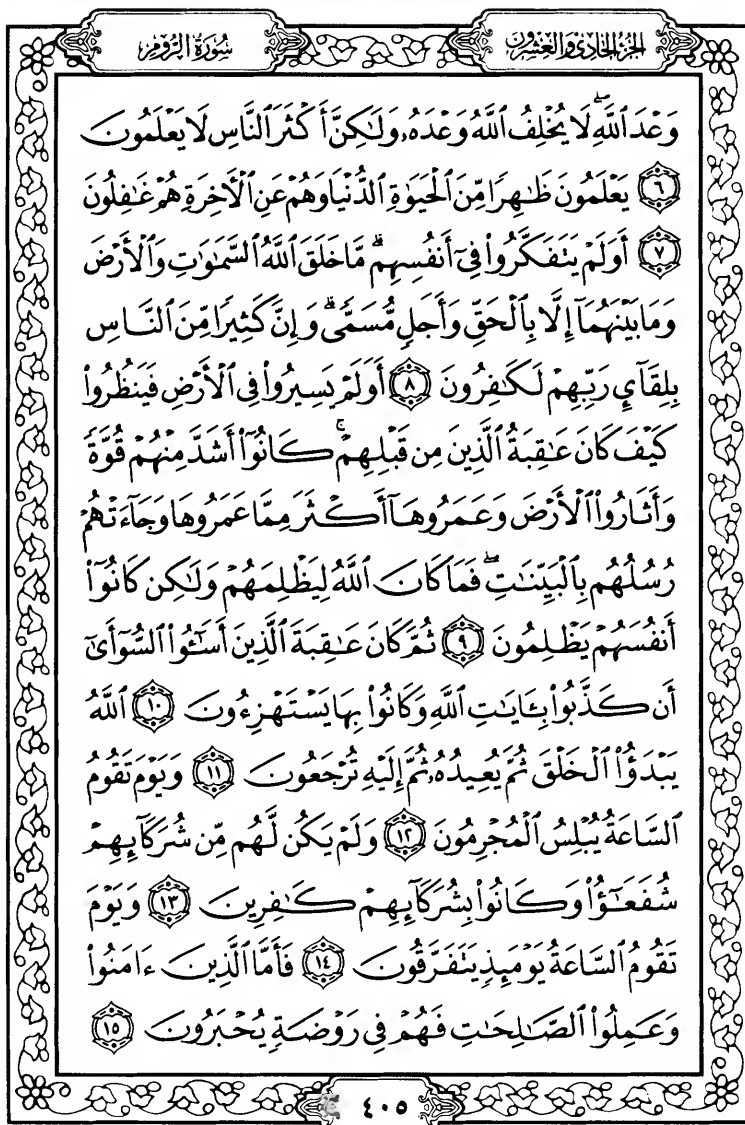 سُورَةُ الرُّومِ
الجُزْءُ الحَادِي وَالعِشْرُونَ
وَعْدَ ٱللَّهِۖ لَا يُخْلِفُ ٱللَّهُ وَعْدَهُۥ وَلَٰكِنَّ أَكْثَرَ ٱلنَّاسِ لَا يَعْلَمُونَ
٦ يَعْلَمُونَ ظَٰهِرًا مِّنَ ٱلْحَيَوٰةِ ٱلدُّنْيَا وَهُمْ عَنِ ٱلْأَخِرَةِ هُمْ غَٰفِلُونَ
٧ أَوَلَمْ يَتَفَكَّرُوا۟ فِىٓ أَنفُسِهِمۗ مَّا خَلَقَ ٱللَّهُ ٱلسَّمَٰوَٰتِ وَٱلْأَرْضَ
وَمَا بَيْنَهُمَآ إِلَّا بِٱلْحَقِّ وَأَجَلٍ مُّسَمًّىۗ وَإِنَّ كَثِيرًا مِّنَ ٱلنَّاسِ
بِلِقَآئِ رَبِّهِمْ لَكَٰفِرُونَ ٨ أَوَلَمْ يَسِيرُوا۟ فِى ٱلْأَرْضِ فَيَنظُرُوا۟
كَيْفَ كَانَ عَٰقِبَةُ ٱلَّذِينَ مِن قَبْلِهِمْۚ كَانُوٓا۟ أَشَدَّ مِنْهُمْ قُوَّةً
وَأَثَارُوا۟ ٱلْأَرْضَ وَعَمَرُوهَآ أَكْثَرَ مِمَّا عَمَرُوهَا وَجَآءَتْهُمْ
رُسُلُهُم بِٱلْبَيِّنَٰتِۖ فَمَا كَانَ ٱللَّهُ لِيَظْلِمَهُمْ وَلَٰكِن كَانُوٓا۟
أَنفُسَهُمْ يَظْلِمُونَ ٩ ثُمَّ كَانَ عَٰقِبَةَ ٱلَّذِينَ أَسَٰٓـُٔوا۟ ٱلسُّوٓأَىٰٓ
أَن كَذَّبُوا۟ بِـَٔايَٰتِ ٱللَّهِ وَكَانُوا۟ بِهَا يَسْتَهْزِءُونَ ١٠ ٱللَّهُ
يَبْدَؤُا۟ ٱلْخَلْقَ ثُمَّ يُعِيدُهُۥ ثُمَّ إِلَيْهِ تُرْجَعُونَ ١١ وَيَوْمَ تَقُومُ
ٱلسَّاعَةُ يُبْلِسُ ٱلْمُجْرِمُونَ ١٢ وَلَمْ يَكُن لَّهُم مِّن شُرَكَآئِهِمْ
شُفَعَٰٓؤُا۟ وَكَانُوا۟ بِشُرَكَآئِهِمْ كَٰفِرِينَ ١٣ وَيَوْمَ
تَقُومُ ٱلسَّاعَةُ يَوْمَئِذٍ يَتَفَرَّقُونَ ١٤ فَأَمَّا ٱلَّذِينَ ءَامَنُوا۟
وَعَمِلُوا۟ ٱلصَّٰلِحَٰتِ فَهُمْ فِى رَوْضَةٍ يُحْبَرُونَ ١٥
٤٠٥